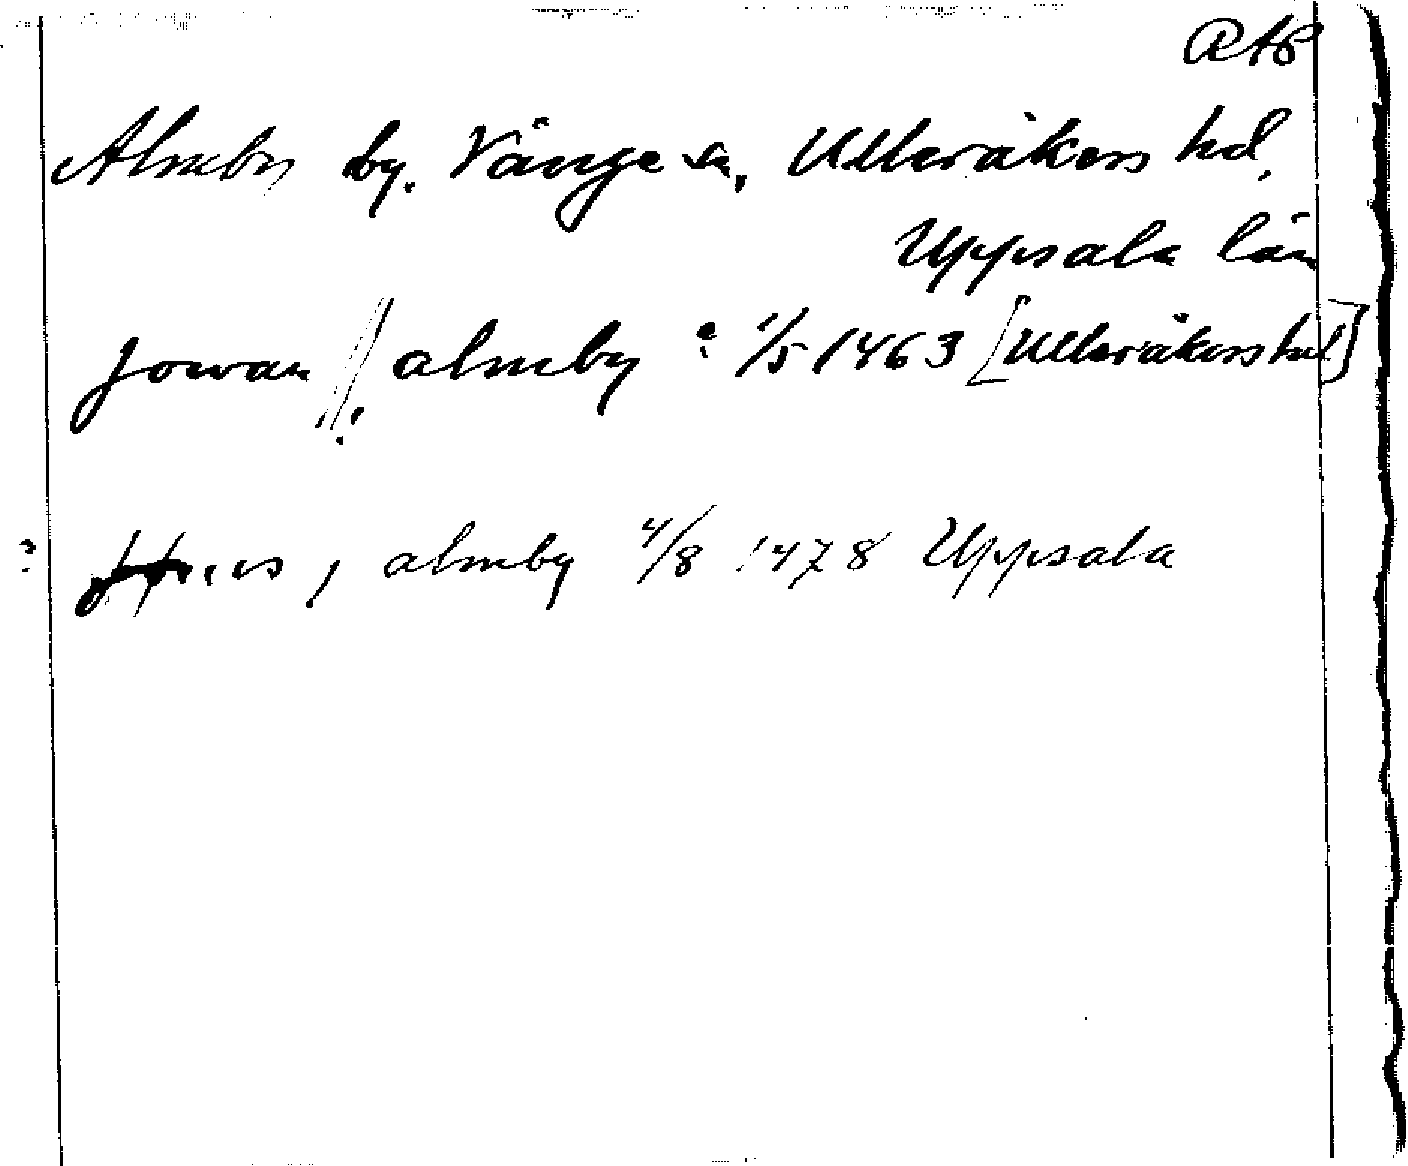 RAP
Almby by. Vänge sn, Ulleråkers hd,
Uppsala län
Jowan // almby : 1/5 1463 [Ulleråkers hd]
? i almby 4/8 1478 Uppsala